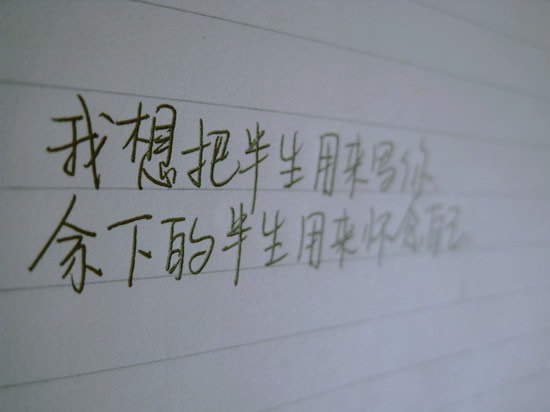 我想把半生用来写你
余下的半生用来怀念自己